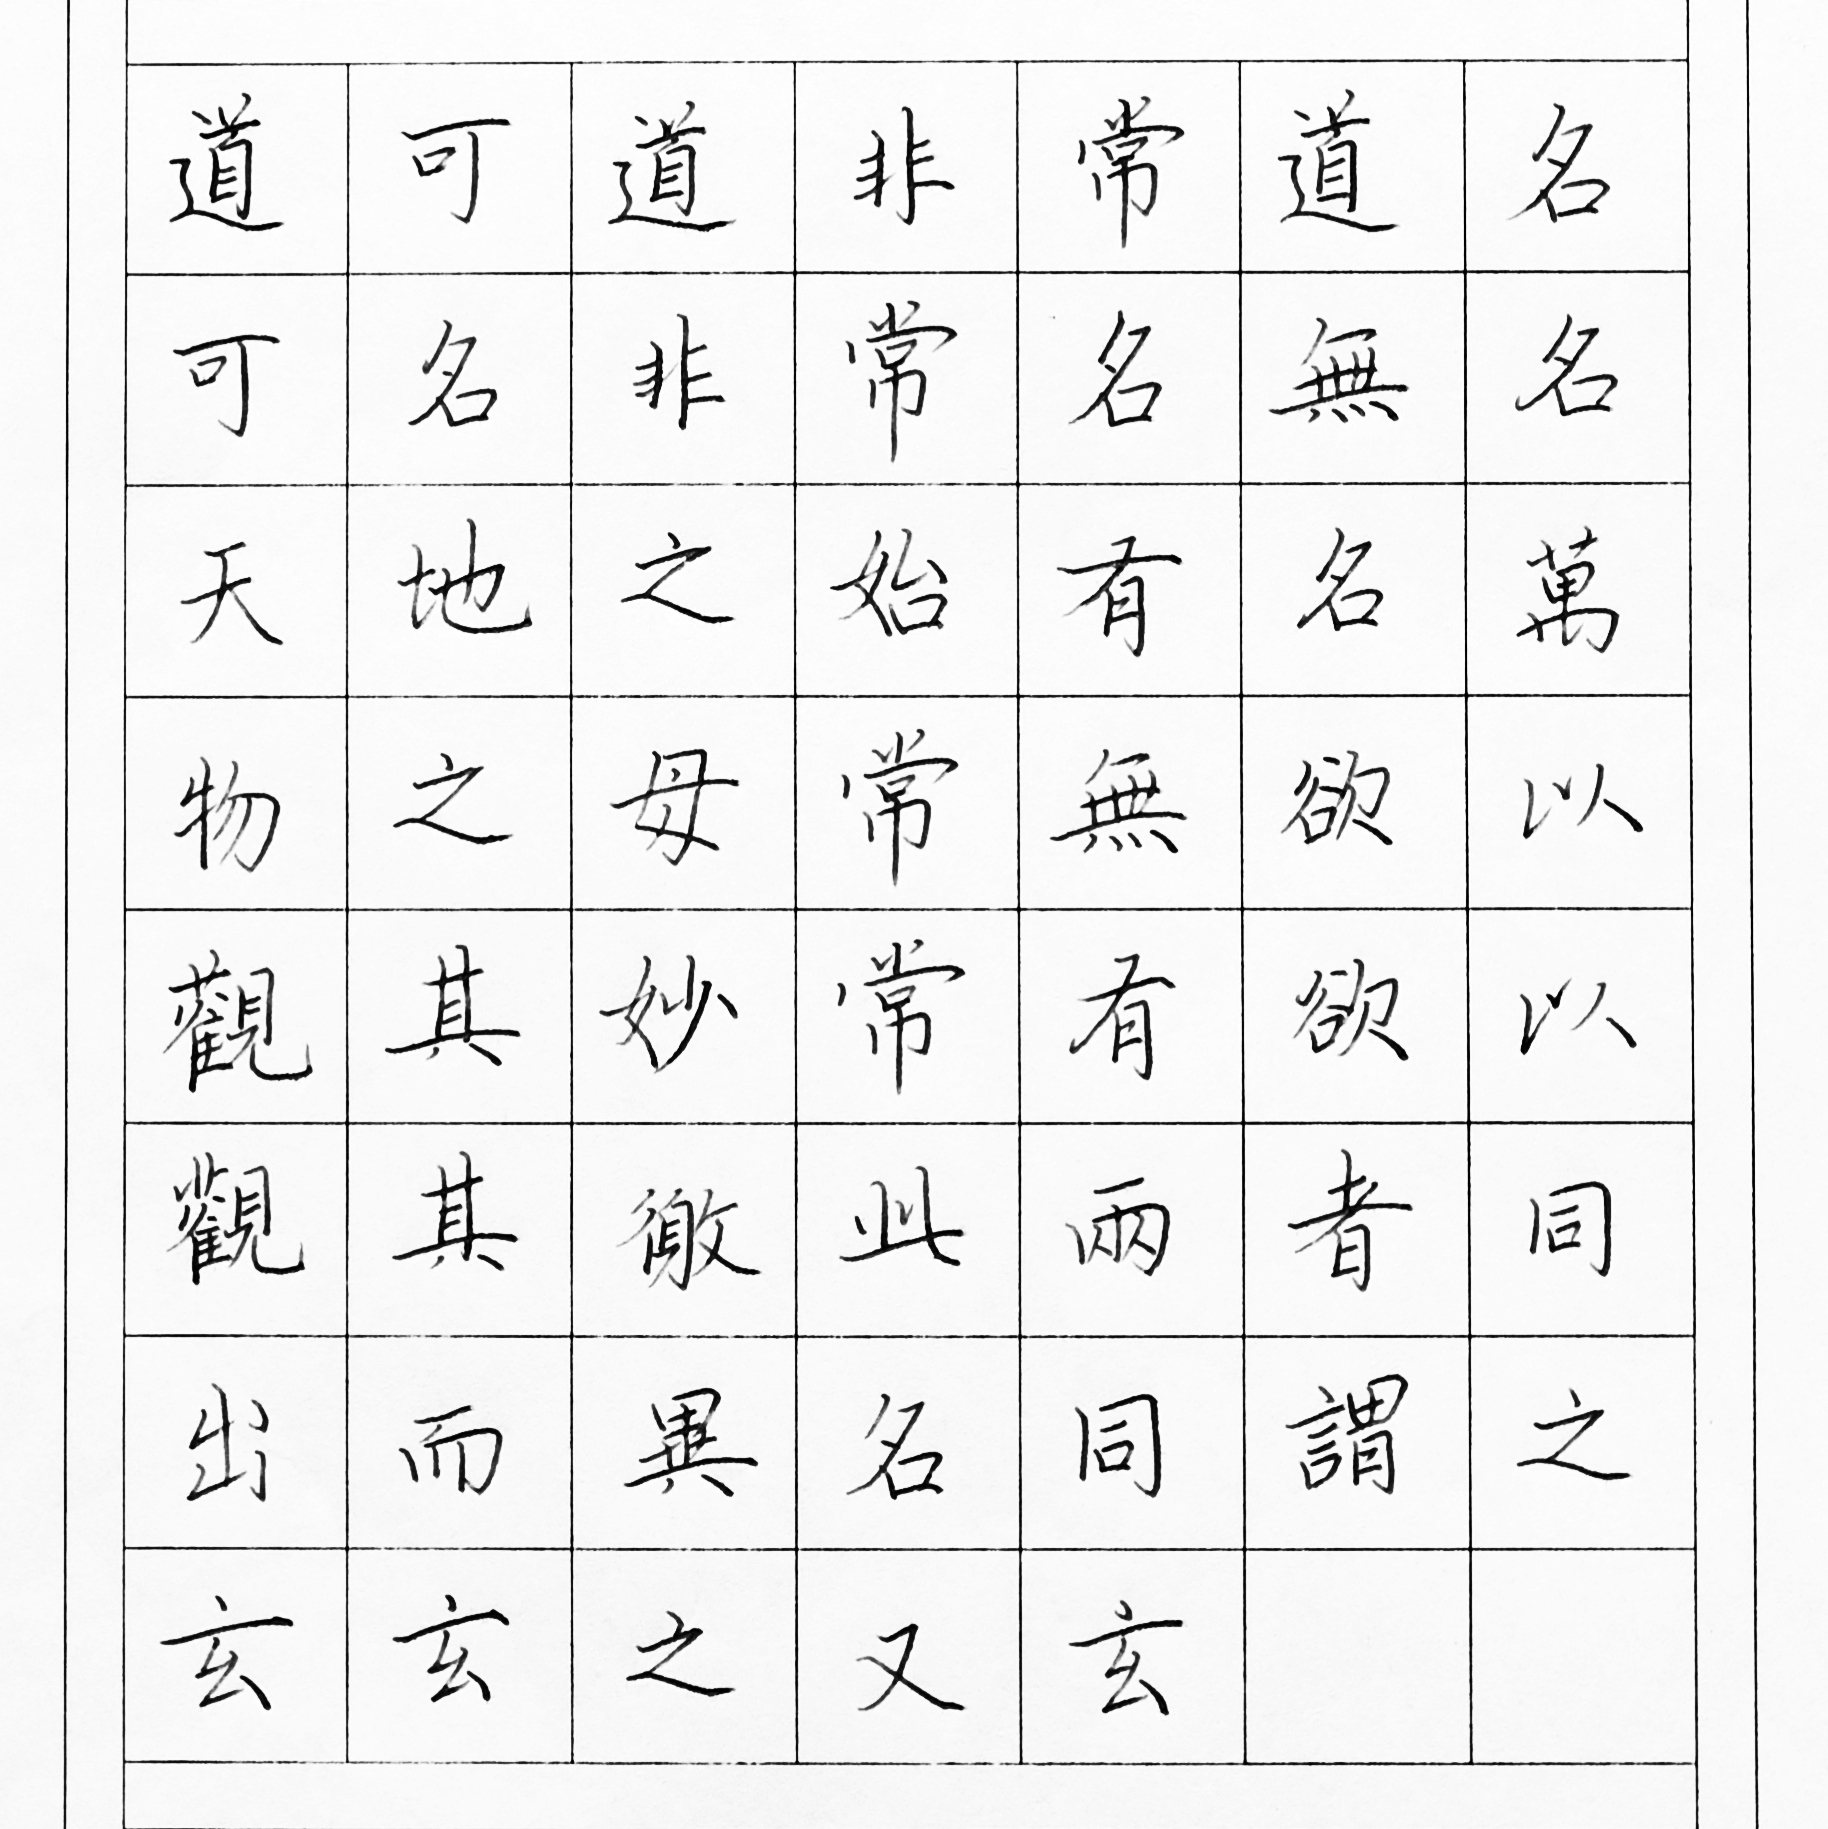 道可道非常道名
可名非常名無名
天地之始有名萬
物之母常無欲以
觀其妙常有欲以
觀其徼此兩者同
出而異名同謂之
玄玄之又玄